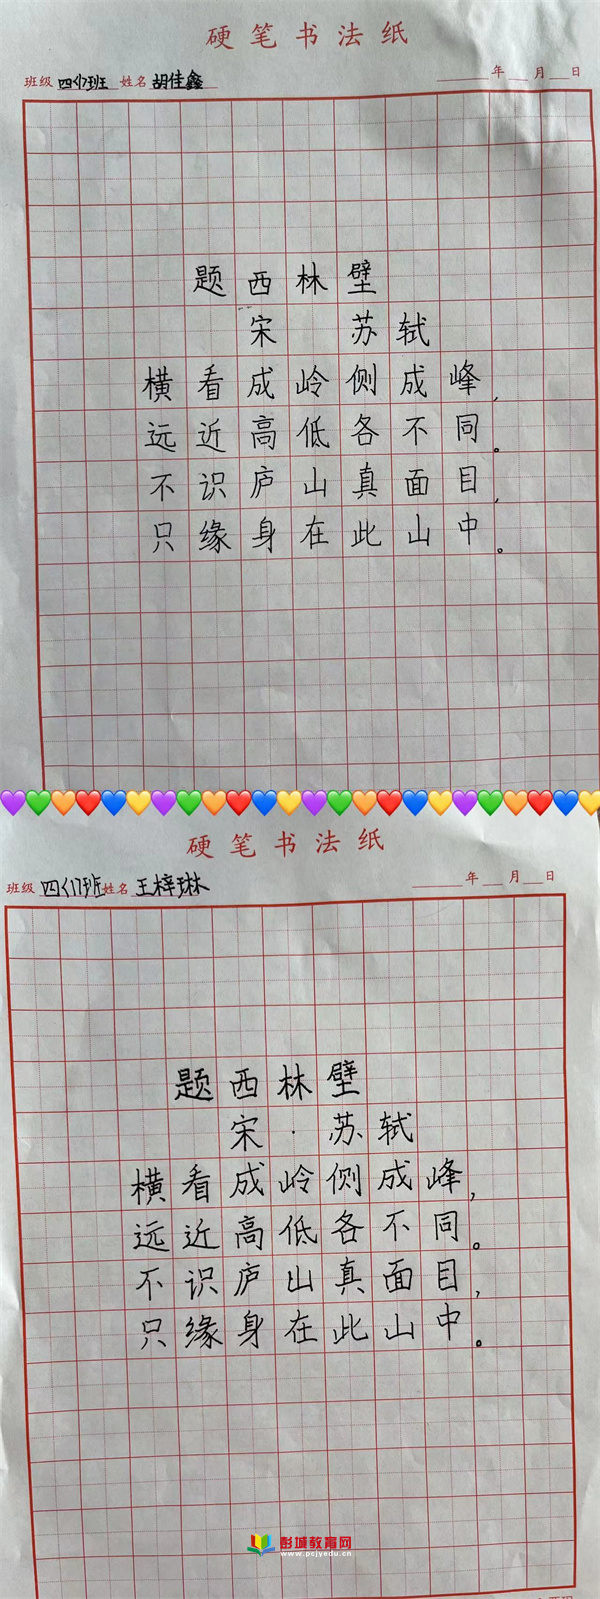 硬笔书法纸
班级 四(1)班 姓名 胡佳鑫 年 月 日
题西林壁
宋 苏轼
横看成岭侧成峰,
远近高低各不同。
不识庐山真面目,
只缘身在此山中。
硬笔书法纸
班级 四(1)班 姓名 王梓琳 年 月 日
题西林壁
宋·苏轼
横看成岭侧成峰,
远近高低各不同。
不识庐山真面目,
只缘身在此山中。
彭城教育网
www.pcjyedu.cn